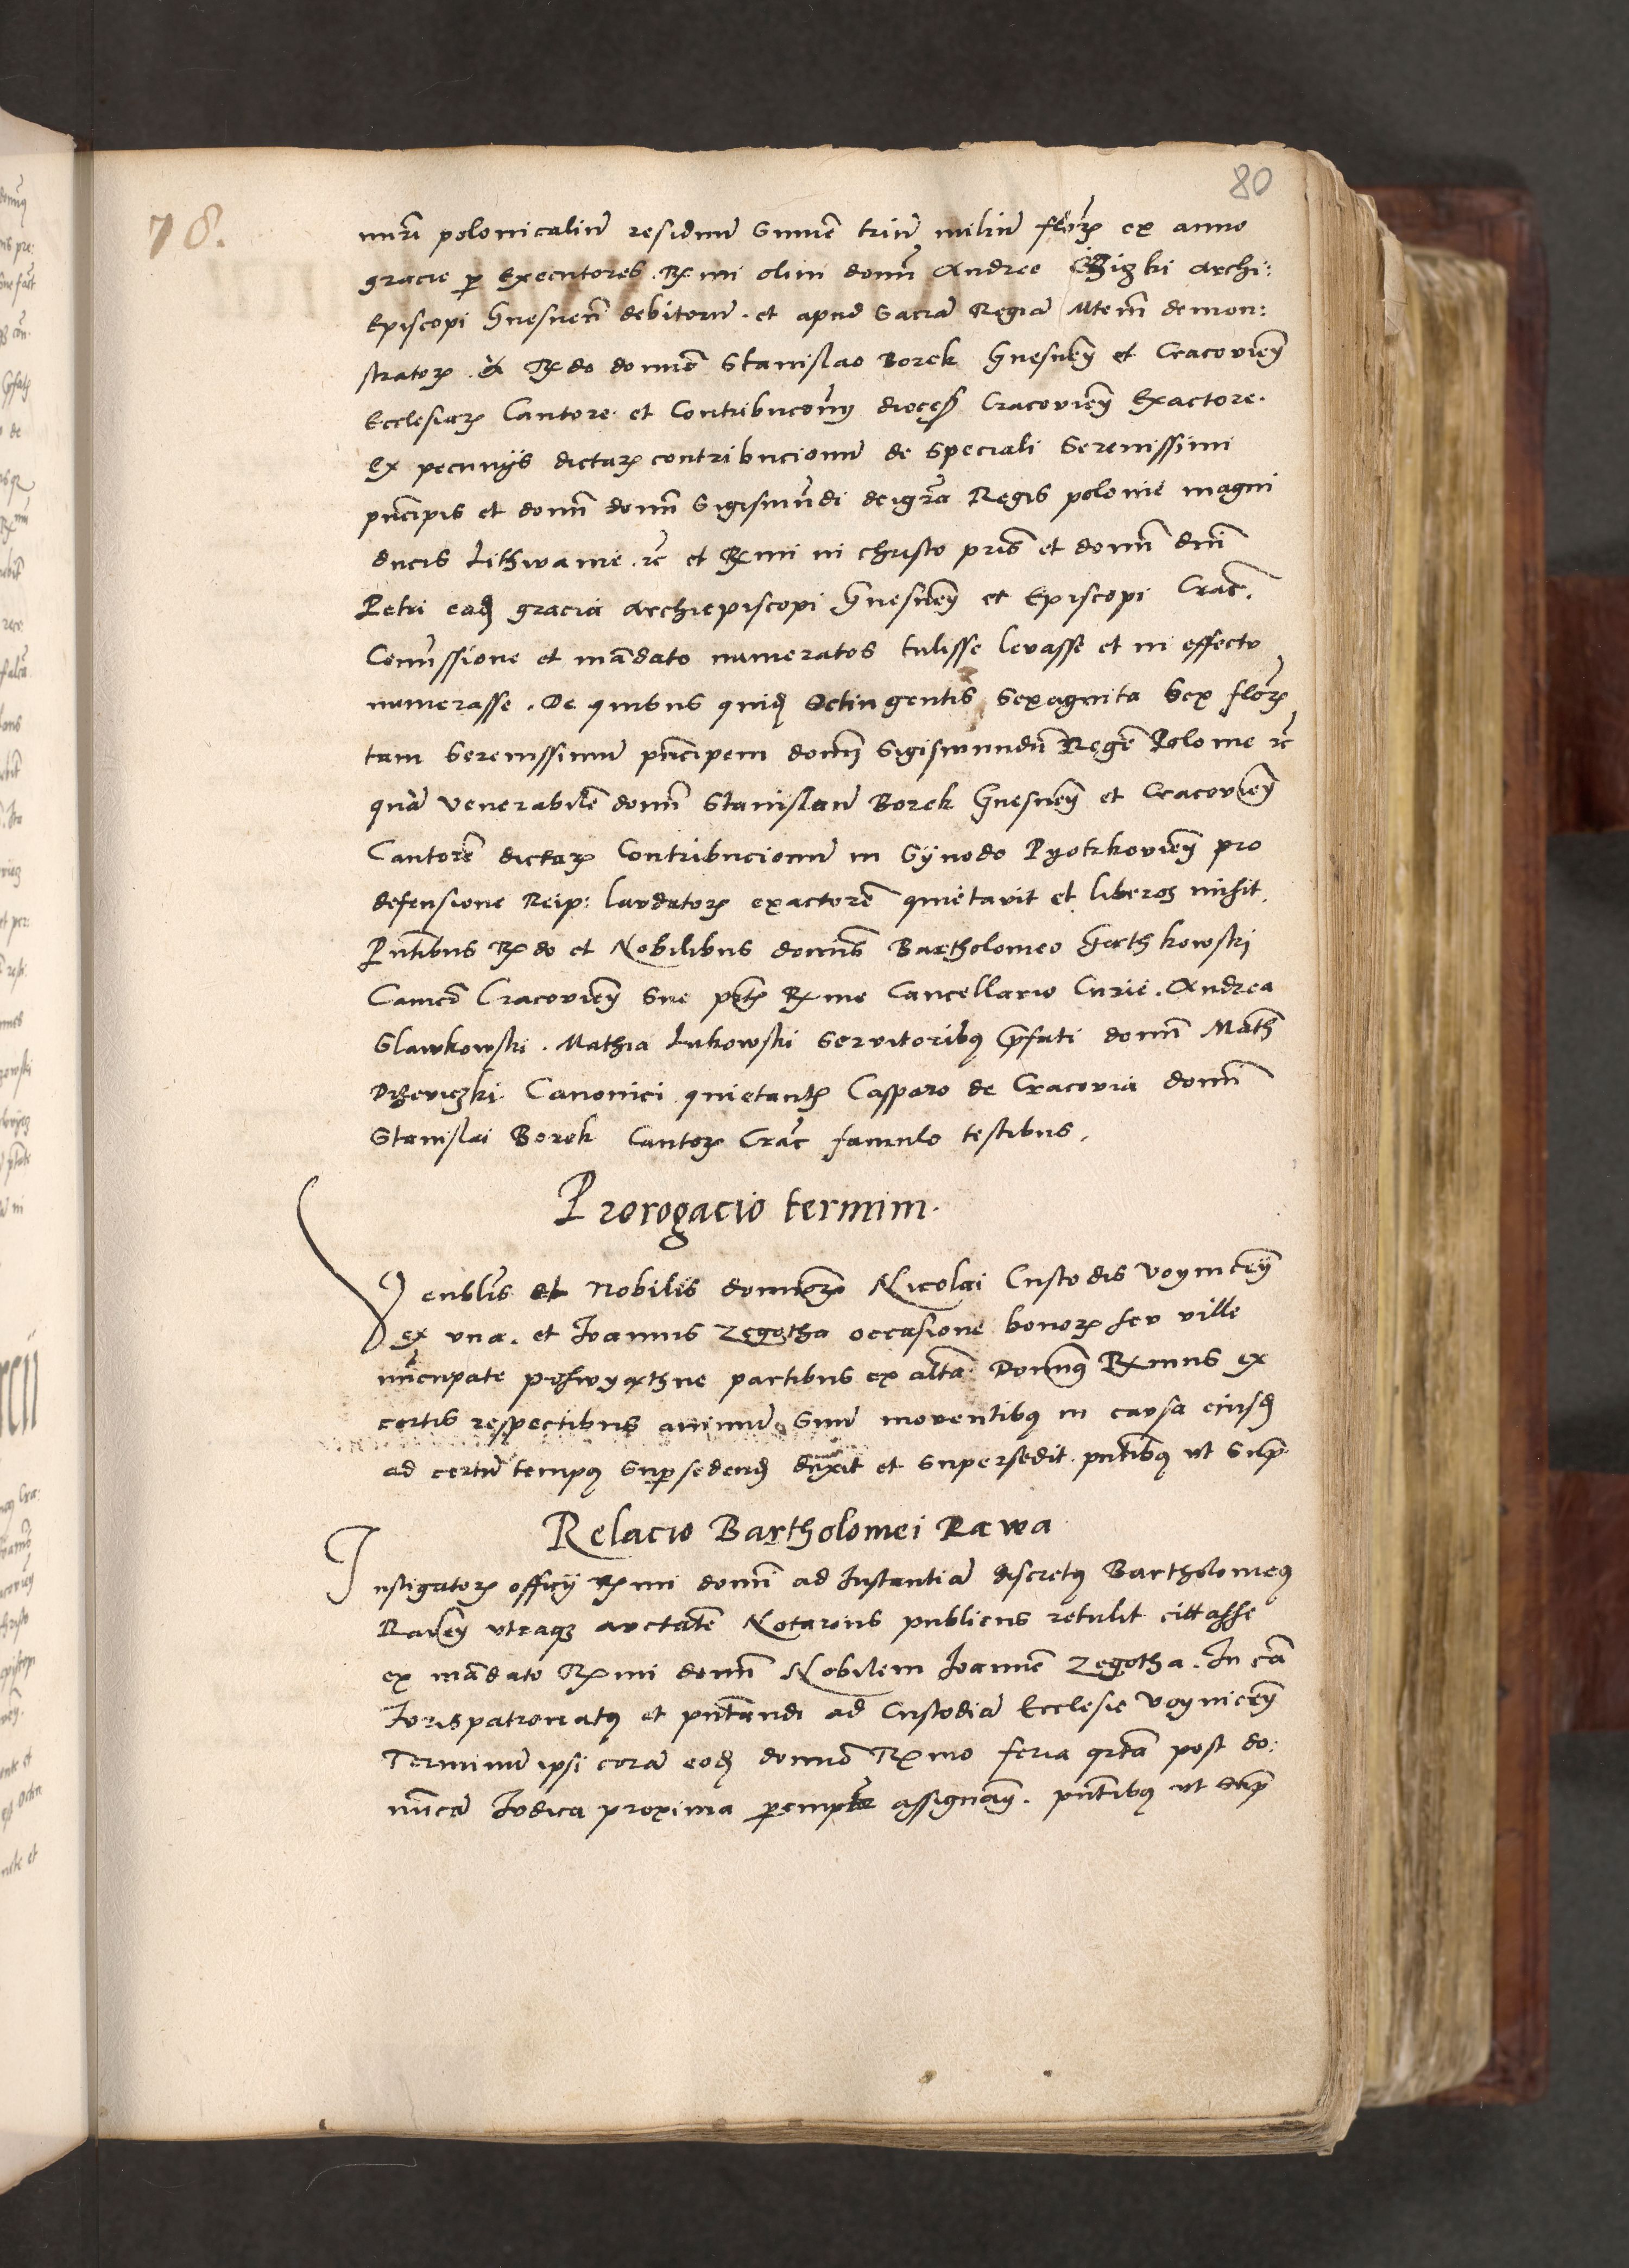 80
78.
nūri polonicaliū residuū Sumē triū miliū florꝝ ex anno
gracie ꝑ Executores Rmi olim domī Andree Crzizki Archi:
Episcopi Gnesnen̄ debitorū. et apud Sacrā Regiā Mtem̄ demon:
stratorꝝ. A Rdo domīo Stanislao Borek Gnesnen̄ et Cracovien̄
Ecclesiarꝝ Cantore. et Contribucionū dioceß Cracovien̄ Exactore.
Ex pecunijs dictarꝝ contribucionū de speciali Serenissimi
prīcipis et domī domī Sigismūdi dei grā Regis polonie magni
ducis Lithwanie. rc̄ et Rmi in christo pris̄ et domī dnī
Petri eadē gracia Archiepiscopi Gnesnen̄ et Episcopi Crac̄.
Comīssione et mādato numeratos tulisse levasse et in effectu
numerasse. De quibus quidē Octingentis Sexaginta Sex florꝝ
tam Serenissimū prīncipem domī Sigismundū Regē Polonie rc̄
quā Venerabilē domī Stanislaū Borek Gnesnen̄ et Cracovien̄
Cantorē dictarꝝ Contribucionū in Synodo Pyotrkovien̄ pro
defensione Reip: laudatorꝝ exactorē quietavit et liberos misit.
Pntibus Rdo et Nobilibus domīs Bartholomeo Ganthkowski
Canco Cracovien̄ Sue ptis Rme Cancellario Curie. Andrea
Slawkowski. Mathia Lukowski Servitoribꝰ p̄fati domī Math̄
Drzeviczki Canonici quietantꝭ Casparo de Cracovia domī
Stanislai Borek Cantorꝭ Crac̄ famulo testibus.
Prorogacio termini.
Venblis et Nobilis domīorꝝ Nicolai Custodis Voynicen̄
ex una. et Ioannis Zegotha occasione bonorꝝ seu ville
nūcupate partibus ex altā Domīnꝰ Rmus ex
certis respectibus animū Suū moventibꝰ in causa eiusdē
ad certū tempꝰ suꝑsedendū duxit et supersedit. pntibꝰ ut sup̄
Relacio Bartholomei Rawa
Instigatorꝭ officij Rmi domī ad Instantiā discretꝰ Bartholomeꝰ
Raven̄ utraqꝫ auctatē Notarius publicus retulit cittasse
ex mādato Rmi domī Nobilem Ioannē Zegotha. In cā
Iurispatronatꝰ et pntandi ad Custodiā Ecclesie Voynicen̄
Terminū ipsi corā eodē domīo Rmo feria qrtā post do:
mīcā Iudica proxima ꝑempte assignan̄. pntibꝰ ut sup̄